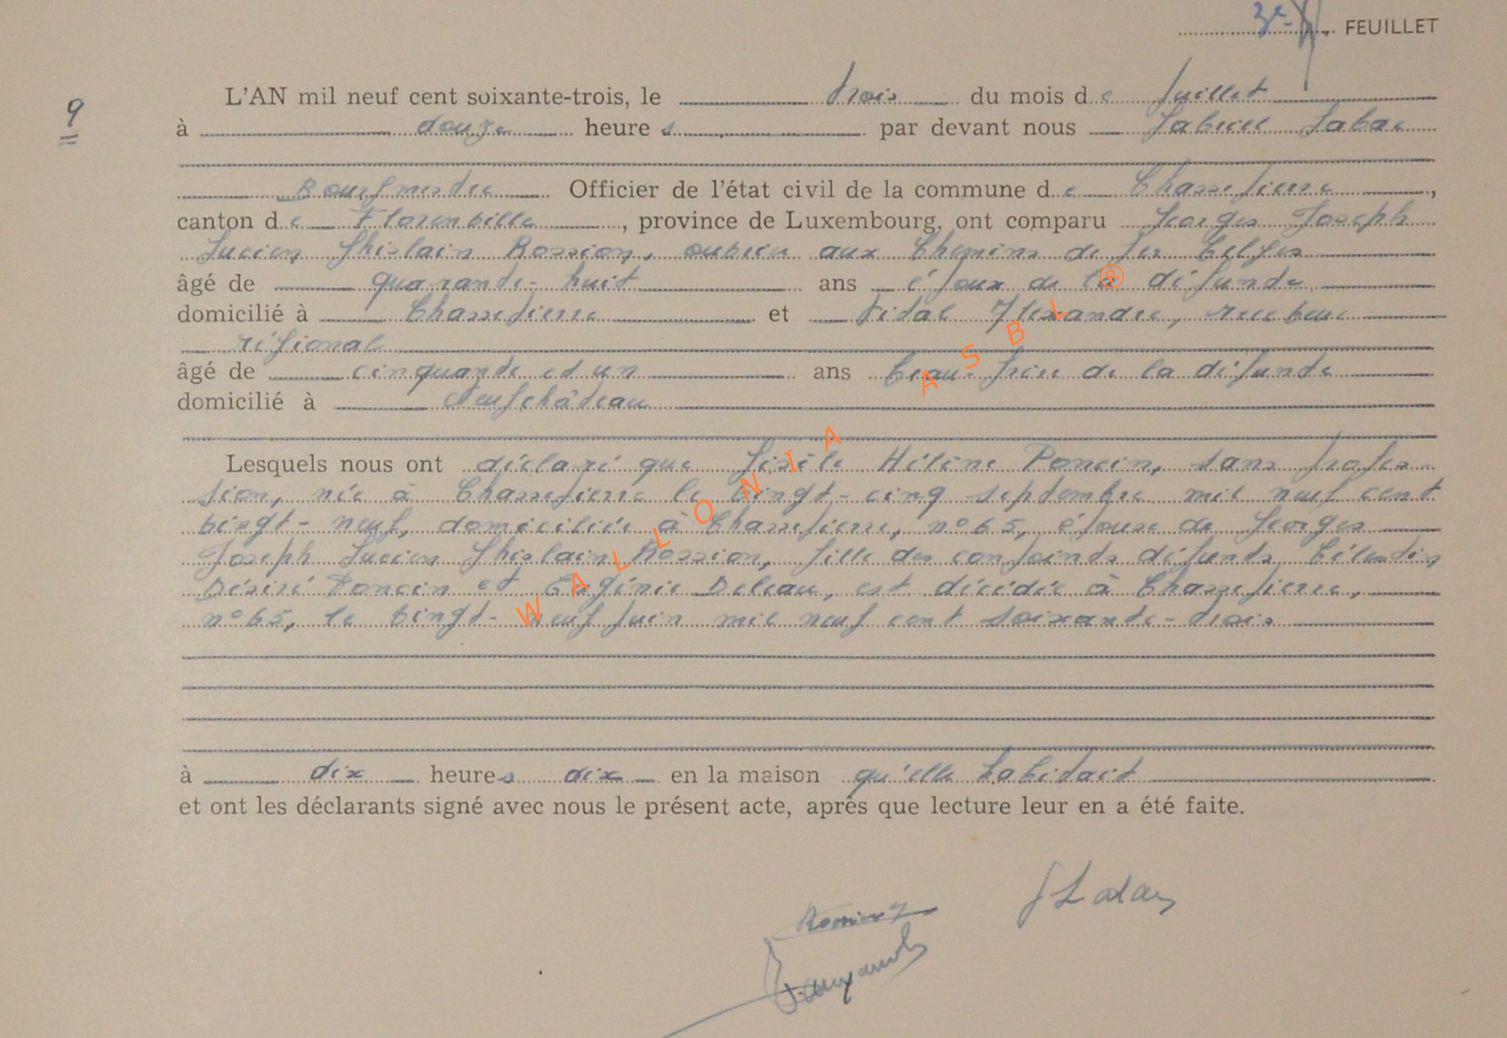 3e FEUILLET
9
L'AN mil neuf cent soixante-trois, le trois du mois de Juillet
à douze heures par devant nous Gabriel Labac
Bourgmestre Officier de l'état civil de la commune de Chassepierre,
canton de Florenville, province de Luxembourg, ont comparu Georges Joseph
Lucien Ghislain Rossion, ouvrier aux Chemins de fer belges
âgé de quarante-huit ans époux de la défunte
domicilié à Chassepierre et Vidal Alexandre, receveur
régional
âgé de cinquante et un ans beau-frère de la défunte
domicilié à Neufchâteau
Lesquels nous ont déclaré que Gisèle Hélène Poncin, sans profes-
sion, née à Chassepierre le vingt-cinq septembre mil neuf cent
vingt-neuf, domiciliée à Chassepierre, n° 65, épouse de Georges
Joseph Lucien Ghislain Rossion, fille des conjoints défunts Célestin
Désiré Poncin et Eugénie Deleau, est décédée à Chassepierre,
n° 65, le vingt-neuf juin mil neuf cent soixante-trois
à dix heures dix en la maison qu'elle habitait
et ont les déclarants signé avec nous le présent acte, après que lecture leur en a été faite.
Rossion
WALLONIA ASBL ®